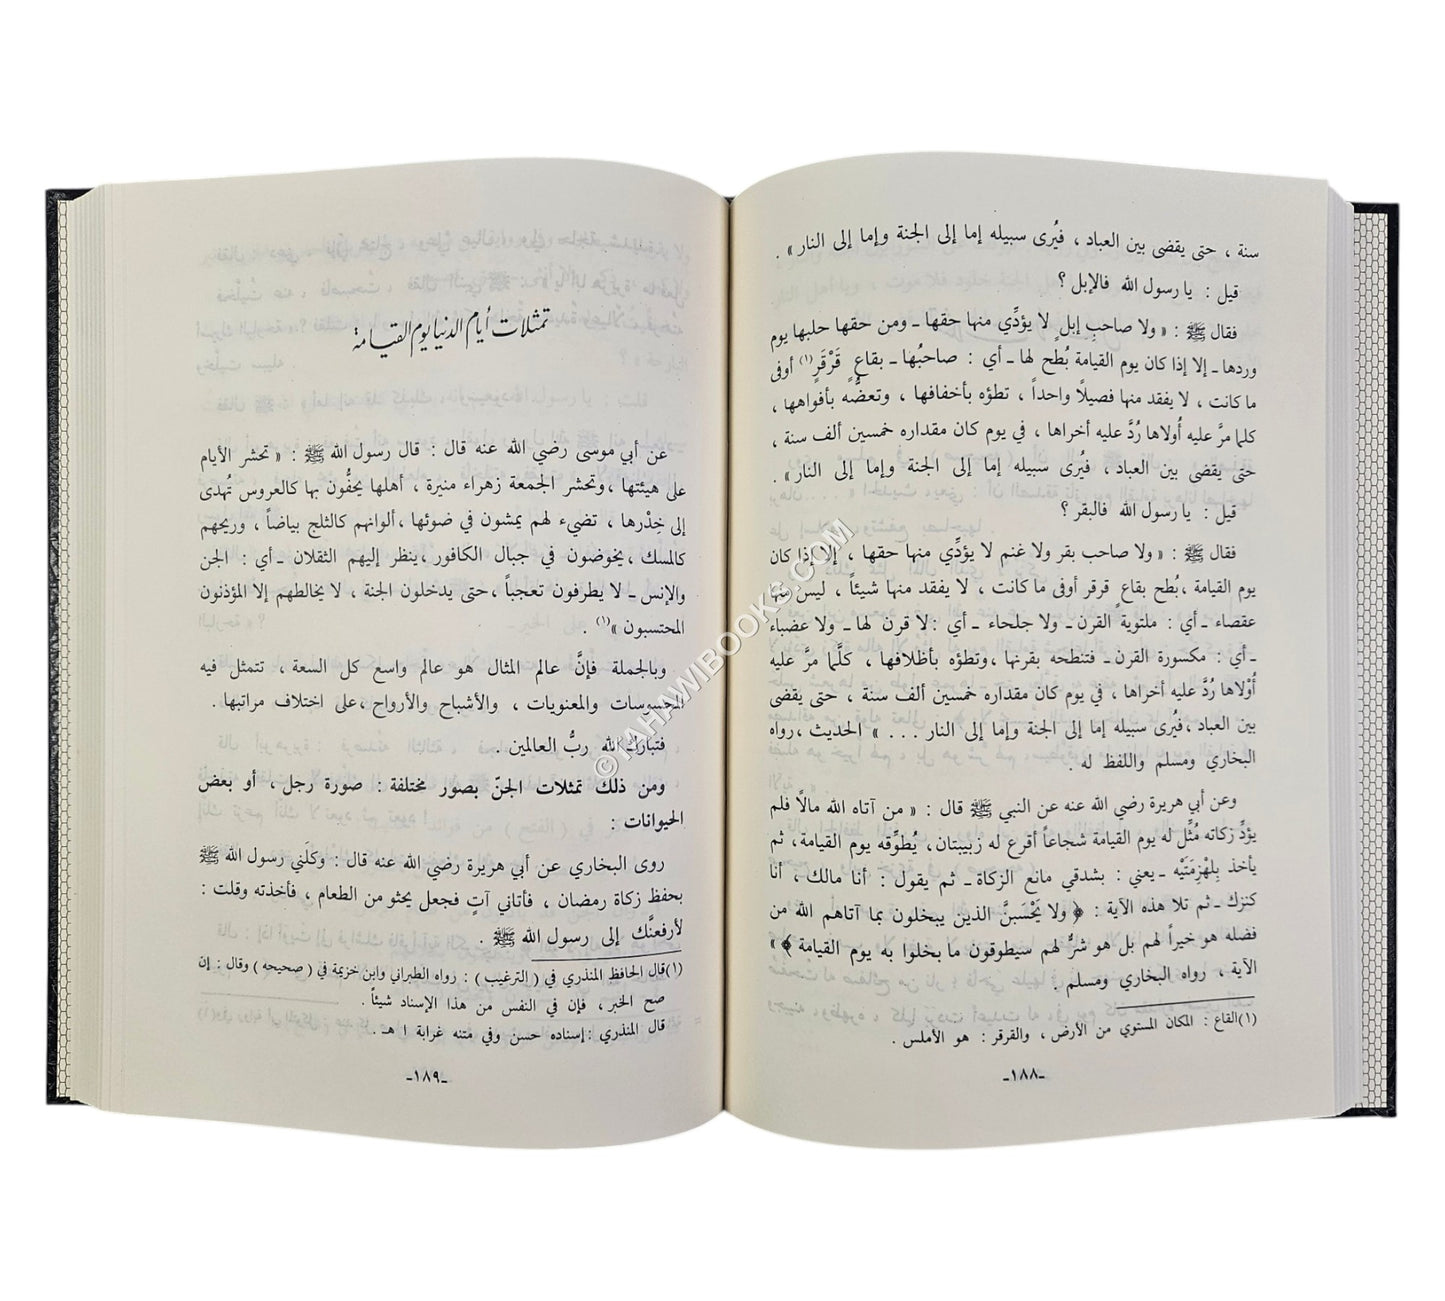 سنة ، حتى يقضى بين العباد ، فيُرى سبيله إما إلى الجنة وإما إلى النار » .
قيل : يا رسول الله فالإبل ؟
فقال ﷺ : « ولا صاحبِ إبلٍ لا يؤدِّي منها حقها ـ ومن حقها حلبها يوم
وردها ـ إلا إذا كان يوم القيامة بُطح لها ـ أي : صاحبُها ـ بقاعٍ قَرْقَرٍ(١) أوفى
ما كانت ، لا يفقد منها فصيلاً واحداً ، تطؤه بأخفافها ، وتعضُّه بأفواهها ،
كلما مرَّ عليه أُولاها رُدَّ عليه أخراها ، في يوم كان مقداره خمسين ألف سنة ،
حتى يقضى بين العباد ، فيُرى سبيله إما إلى الجنة وإما إلى النار» .
قيل : يا رسول الله فالبقر ؟
فقال ﷺ : « ولا صاحب بقر ولا غنم لا يؤدِّي منها حقها ، إلا إذا كان
يوم القيامة ، بُطح بقاعٍ قرقر أوفى ما كانت ، لا يفقد منها شيئاً ، ليس منها
عقصاء ـ أي : ملتوية القرن ـ ولا جلحاء ـ أي : لا قرن لها ـ ولا عضباء
ـ أي : مكسورة القرن ـ فتنطحه بقرنها ، وتطؤه بأظلافها ، كلَّما مرَّ عليه
أُوْلاها رُدَّ عليه أخراها ، في يوم كان مقداره خمسين ألف سنة ، حتى يقضى
بين العباد ، فيُرى سبيله إما إلى الجنة وإما إلى النار ... » الحديث ، رواه
البخاري ومسلم واللفظ له .
وعن أبي هريرة رضي الله عنه عن النبي ﷺ قال : « من آتاه الله مالًا فلم
يؤدِّ زكاته مُثِّل له يوم القيامة شجاعاً أقرع له زبيبتان، يُطوِّقه يوم القيامة، ثم
يأخذ بِلِهْزِمَتَيْه ـ يعني : بشدقي مانع الزكاة ـ ثم يقول : أنا مالك ، أنا
كنزك ـ ثم تلا هذه الآية : ﴿ ولا يَحْسَبنَّ الذين يبخلون بما آتاهم الله من
فضله هو خيراً لهم بل هو شرٌّ لهم سيطوقون ما بخلوا به يوم القيامة ﴾ »
الآية ، رواه البخاري ومسلم .
(١) القاع : المكان المستوي من الأرض ، والقرقر : هو الأملس .
ـ١٨٨ـ
تمثلات أيام الدنيا يوم القيامة
عن أبي موسى رضي الله عنه قال : قال رسول الله ﷺ : « تحشر الأيام
على هيئتها ، وتحشر الجمعة زهراء منيرة ، أهلها يحفُّون بها كالعروس تُهدى
إلى خِدْرها ، تضيء لهم يمشون في ضوئها ، ألوانهم كالثلج بياضاً ، وريحهم
كالمسك ، يخوضون في جبال الكافور ، ينظر إليهم الثقلان ـ أي : الجن
والإنس ـ لا يطرفون تعجباً ، حتى يدخلون الجنة ، لا يخالطهم إلا المؤذنون
المحتسبون »(١) .
وبالجملة فإنَّ عالم المثال هو عالم واسع كل السعة ، تتمثل فيه
المحسوسات والمعنويات ، والأشباح والأرواح ، على اختلاف مراتبها .
فتبارك الله ربُّ العالمين .
ومن ذلك تمثلات الجنّ بصور مختلفة : صورة رجل ، أو بعض
الحيوانات :
روى البخاري عن أبي هريرة رضي الله عنه قال : وكلَني رسول الله ﷺ
بحفظ زكاة رمضان ، فأتاني آتٍ فجعل يحثو من الطعام ، فأخذته وقلت :
لأرفعنَّك إلى رسول الله ﷺ .
(١) قال الحافظ المنذري في ( الترغيب ) : رواه الطبراني وابن خزيمة في ( صحيحه ) وقال : إن
صح الخبر ، فإن في النفس من هذا الإسناد شيئاً .
قال المنذري : إسناده حسن وفي متنه غرابة ا هـ .
ـ١٨٩ـ
©TAHAWIBOOKS.COM